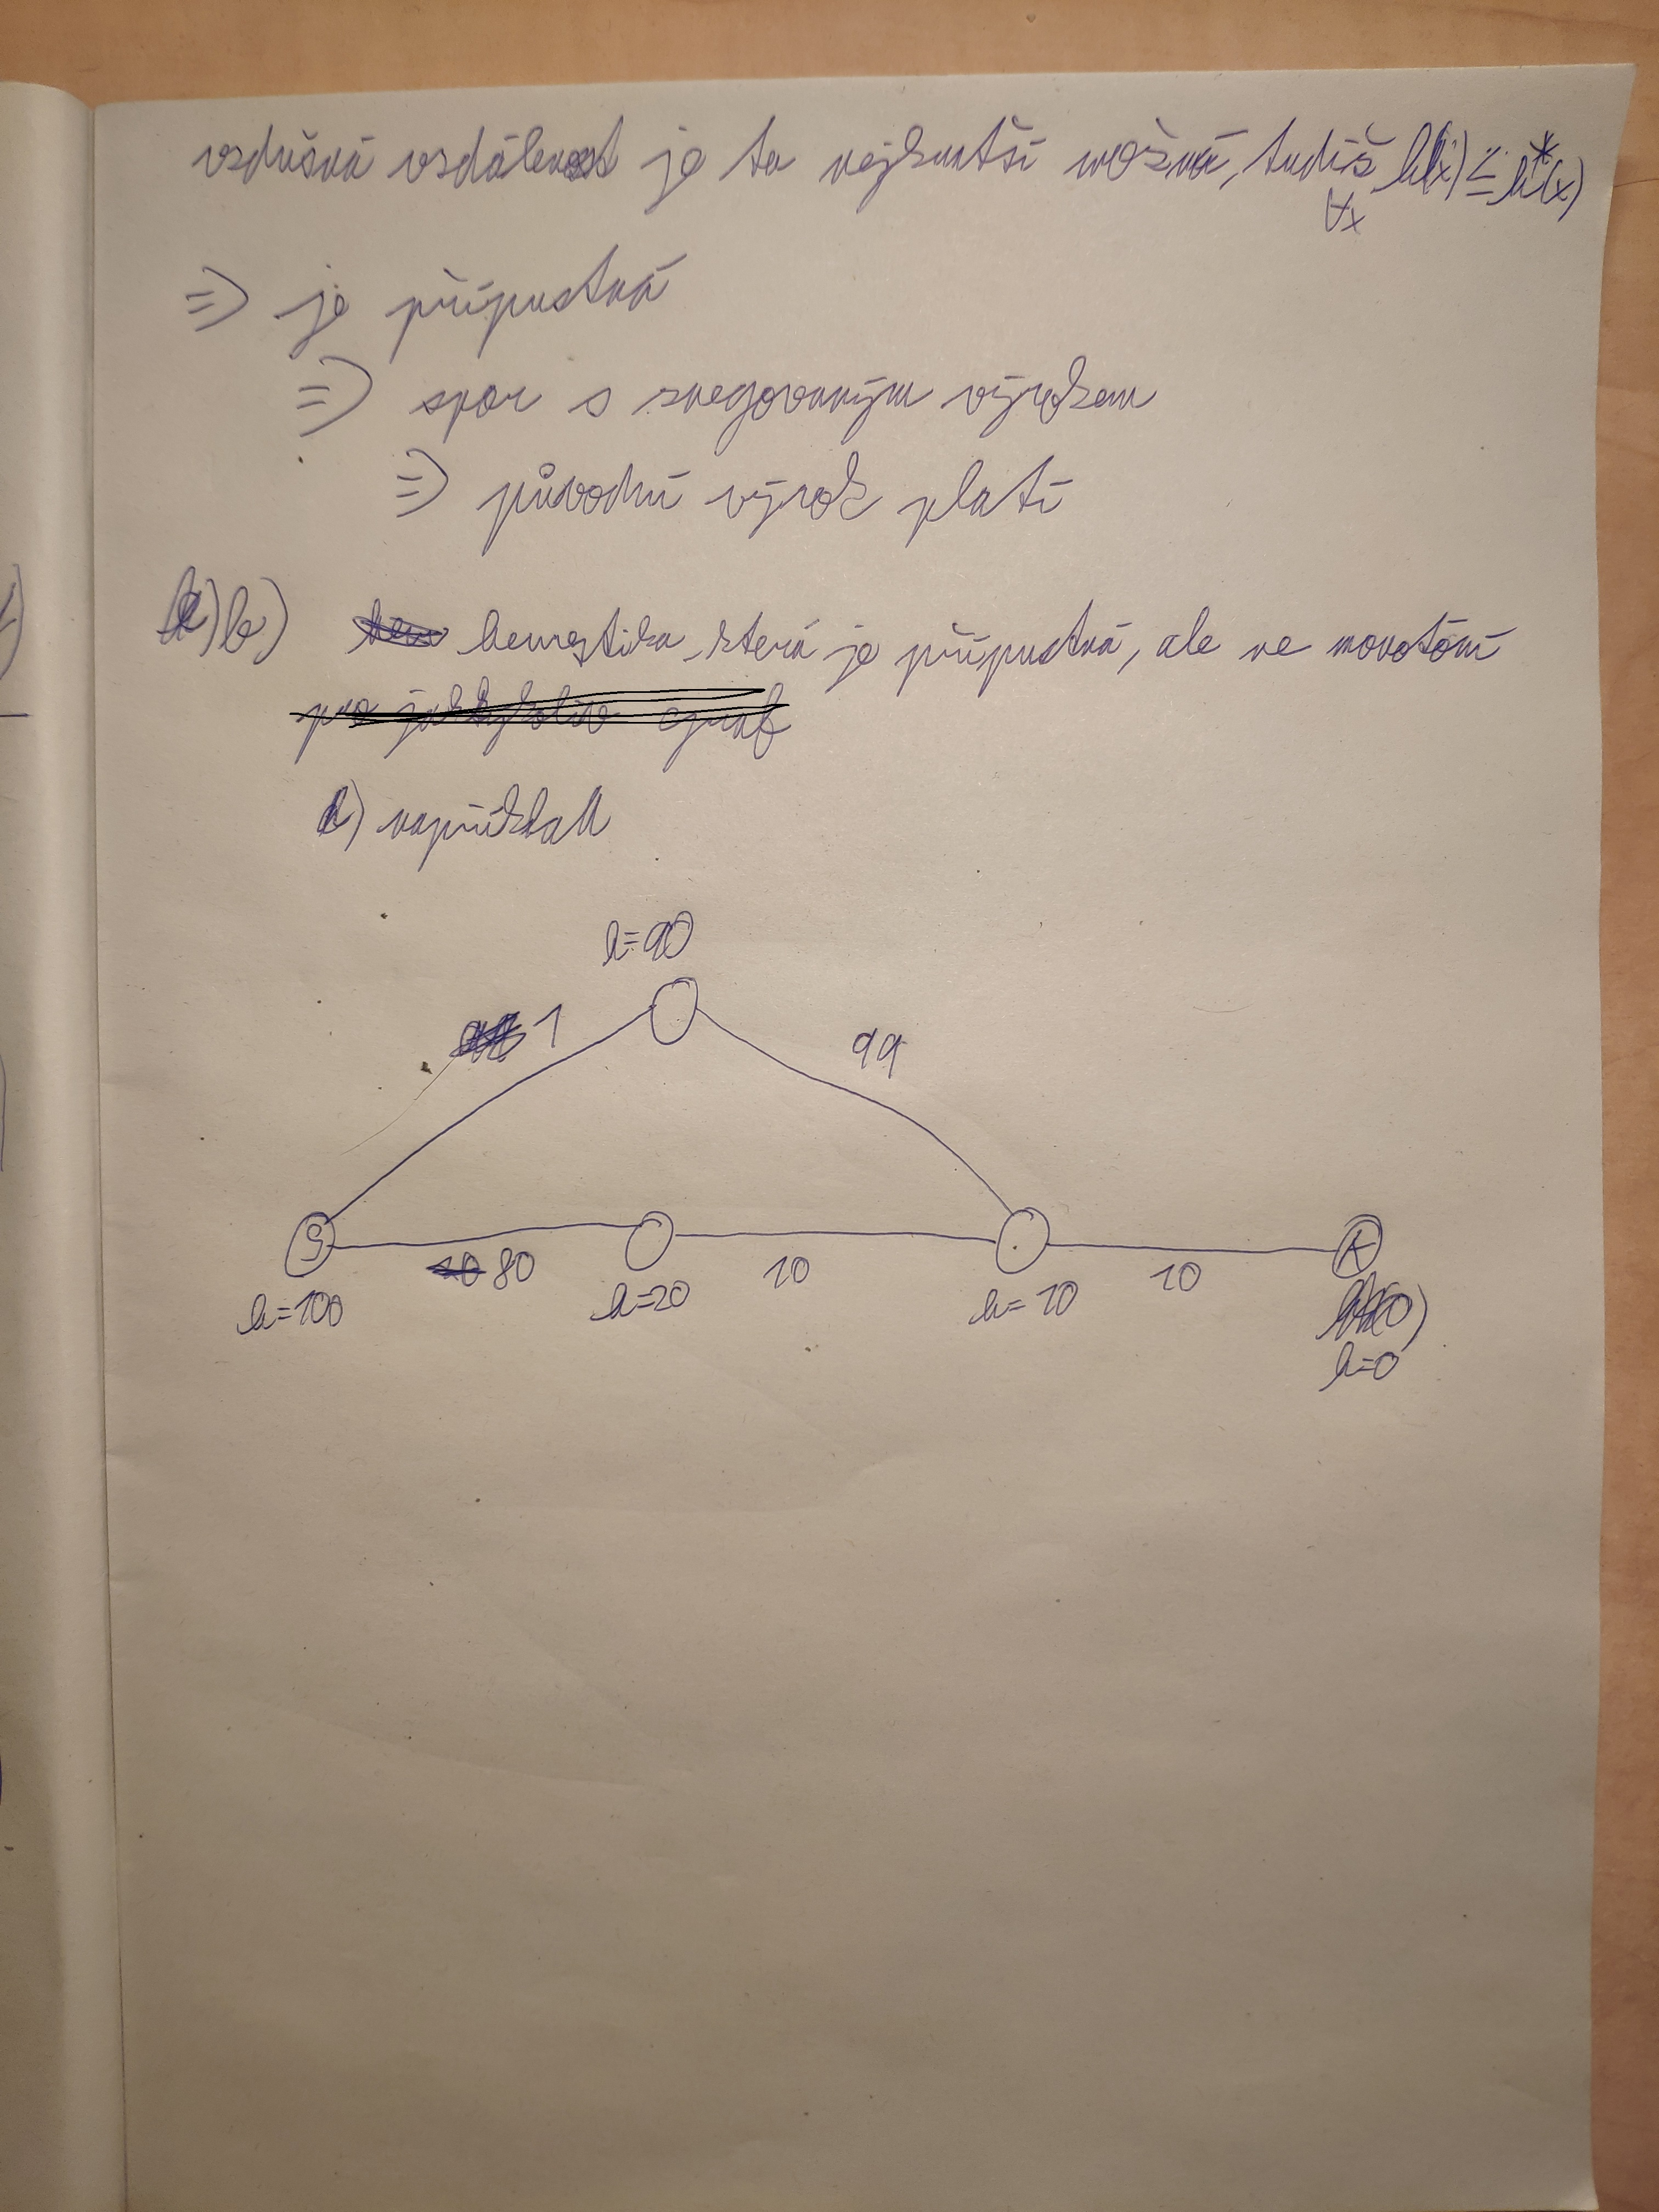 vzdušná vzdálenost je ta nejkratší možná, tudíž h(x) ≤ h*(x)
∀x
=) je přípustná
=) spor s znegovaným výrokem
=) původní výrok platí
b) heurestika, která je přípustná, ale ne monotóní
pro jakýkoliv graf
) například
h=90
1
99
S
80
10
10
h=100
h=20
h=10
h=0